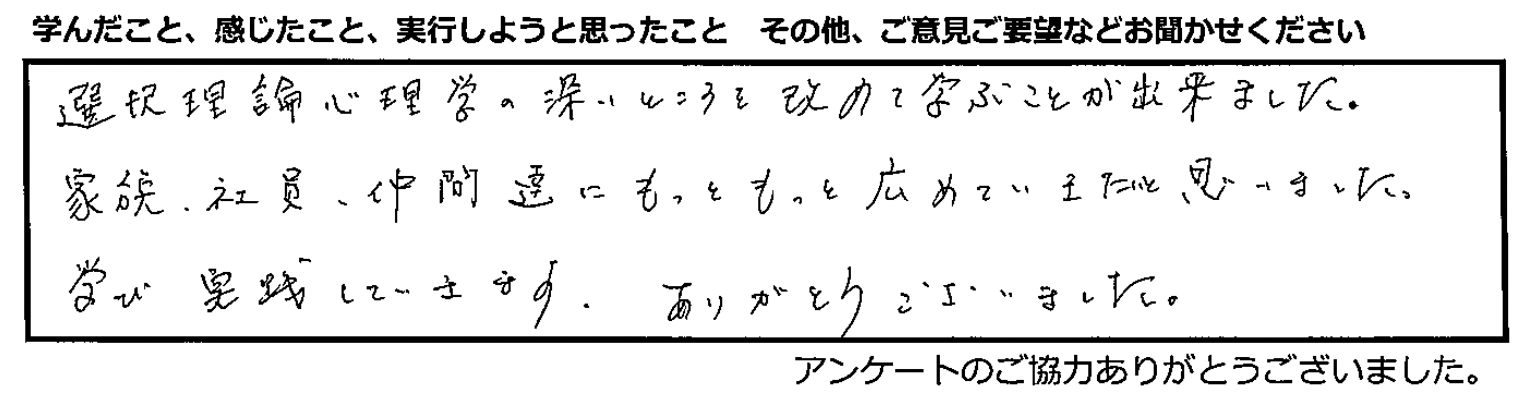 学んだこと、感じたこと、実行しようと思ったこと　その他、ご意見ご要望などお聞かせください
選択理論心理学の深いところを改めて学ぶことが出来ました。
家族、社員、仲間達にもっともっと広めていきたいと思いました。
学び実践していきます。ありがとうございました。
アンケートのご協力ありがとうございました。